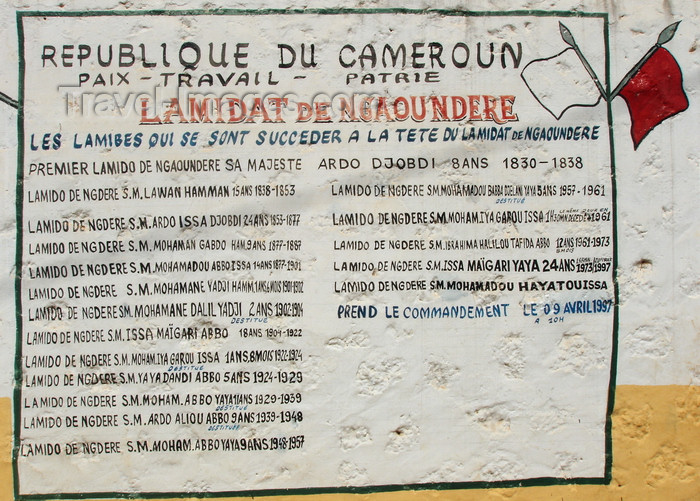 REPUBLIQUE DU CAMEROUN
PAIX - TRAVAIL - PATRIE
LAMIDAT DE NGAOUNDERE
LES LAMIBES QUI SE SONT SUCCEDER A LA TETE DU LAMIDAT DE NGAOUNDERE
PREMIER LAMIDO DE NGAOUNDERE SA MAJESTE ARDO DJOBDI 8ANS 1830-1838
LAMIDO DE NGDERE S.M. LAWAN HAMMAN 15ANS 1838-1853
LAMIDO DE NGDERE S.M. ARDO ISSA DJOBDI 24ANS 1853-1877
LAMIDO DE NGDERE S.M. MOHAMAN GABDO HAM. 9ANS 1877-1887
LAMIDO DE NGDERE S.M. MOHAMADOU ABBO ISSA 14ANS 1877-1901
LAMIDO DE NGDERE S.M. MOHAMANE YADJI HAMM. 1ANS 1901-1902
LAMIDO DE NGDERE SM. MOHAMANE DALIL YADJI 2ANS 1902-1904
DESTITUE
LAMIDO DE NGDERE S.M. ISSA MAÏGARI ABBO 18ANS 1904-1922
LAMIDO DE NGDERE S.M. MOHAM. IYA GAROU ISSA 1ANS, 8MOIS 1922-1924
DESTITUE
LAMIDO DE NGDERE S.M. YAYA DANDI ABBO 5ANS 1924-1929
LAMIDO DE NGDERE S.M. MOHAM. ABBO YAYA 11ANS 1929-1939
DESTITUE
LAMIDO DE NGDERE S.M. ARDO ALIOU ABBO 9ANS 1939-1948
DESTITUÉ
LAMIDO DE NGDERE S.M. MOHAM. ABBO YAYA 9ANS 1948-1957
LAMIDO DE NGDERE S.M. MOHAMADOU BABBA DJALAN YAYA 5ANS 1957-1961
DESTITUE
LE MÊME JOUR EN
LAMIDO DE NGDERE S.M. MOHAM. IYA GAROU ISSA 1H30MN DECEDE 1961
LAMIDO DE NGDERE S.M. IBRAHIMA HALILOU TAFIDA ABBO 12ANS 1961-1973
6MOIS
LAMIDO DE NGDERE S.M. ISSA MAÏGARI YAYA 24ANS 1973 1997
LAMIDO DE NGDERE S.M. MOHAMADOU HAYATOU ISSA
PREND LE COMMANDEMENT LE 09 AVRIL 1997
A 10H
Travel-Images.com